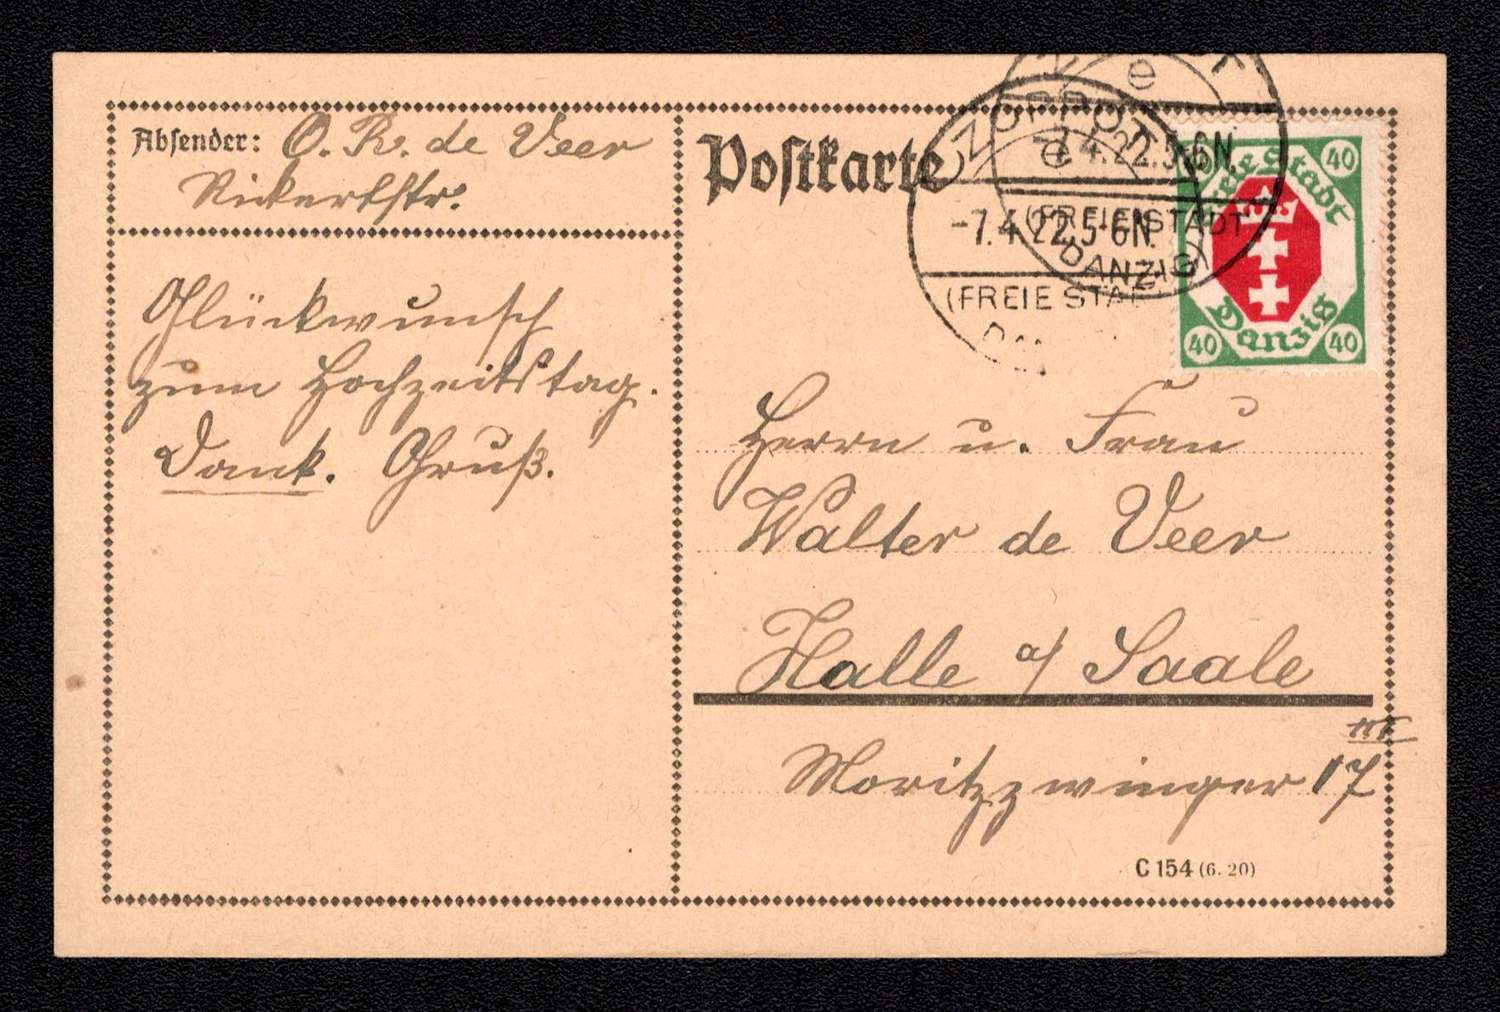 Absender: O. R. de Veer
Rickertstr.
Glückwunsch
zum Hochzeitstag.
Dank. Gruß.
Postkarte
ZOPPOT
e
-7.4.22.5-6N.
(FREIE STADT
DANZIG)
e
-7.4.22.5-6N.
(FREIE STA
40
40
40
Freie Stadt
Danzig
Herrn u. Frau
Walter de Veer
Halle a/ Saale
Moritzzwinger 17
III
C 154 (6. 20)